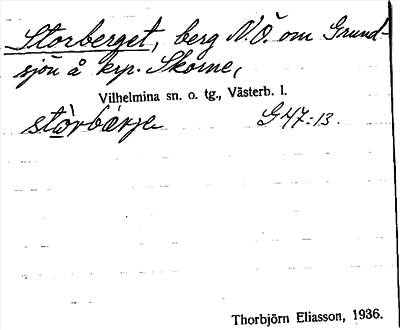 Storberget, berg N.Ö. om Grund-
sjön å krp. Skorne,
Vilhelmina sn. o. tg., Västerb. l.
stòrbárje G47:13.
Thorbjörn Eliasson, 1936.